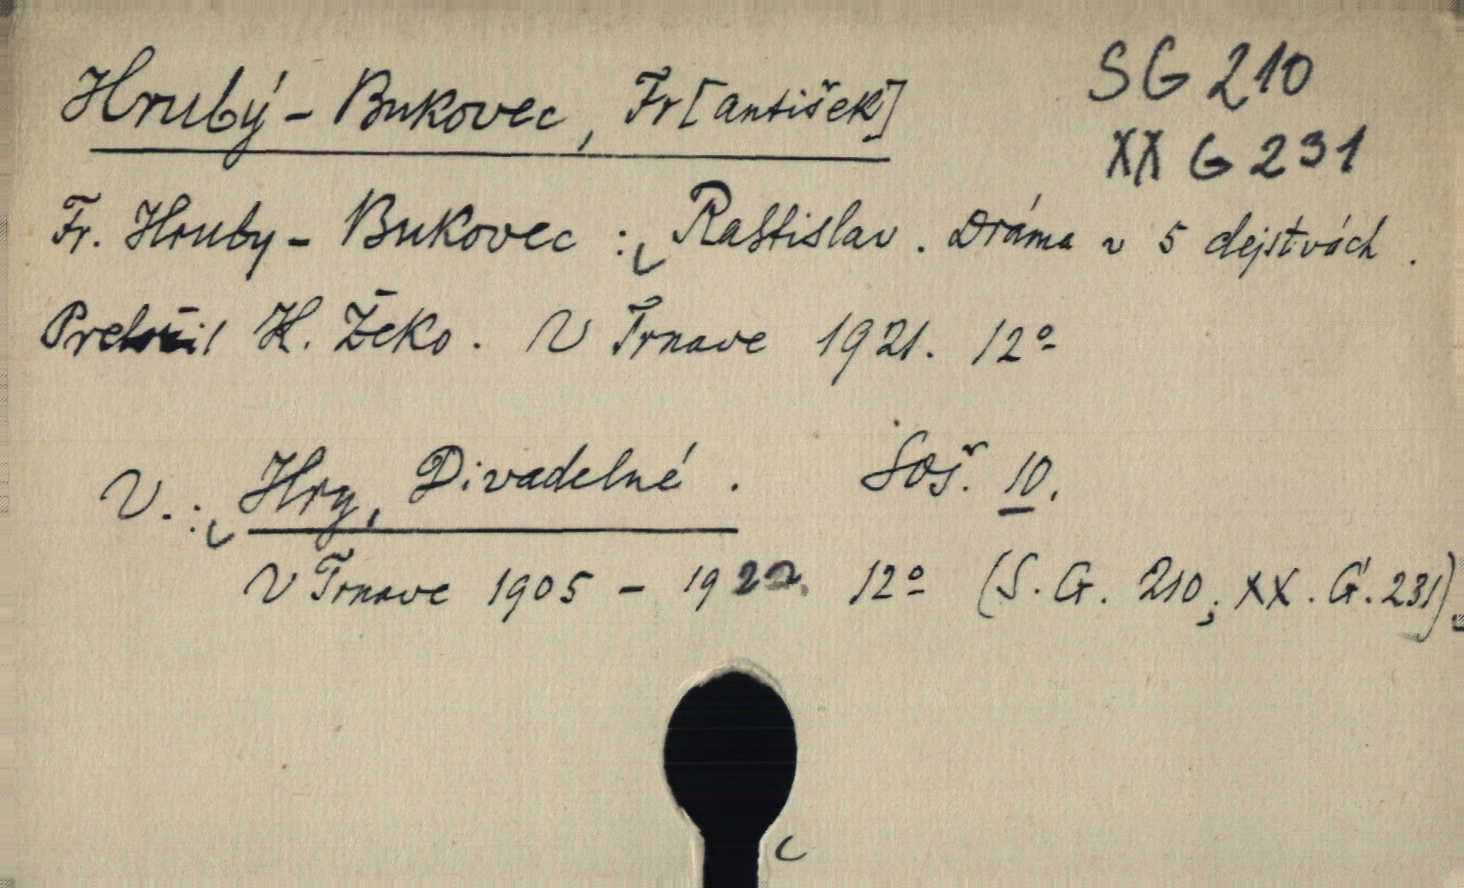 Hrubý - Bukovec, Fr[antišek]
SG 210
XX G 231
Fr. Hruby - Bukovec : Rastislav. Dráma v 5 dejstvách.
Preložil H. Žeko. V Trnave 1921. 12°
V.: Hry, Divadelné. Soš. 10.
V Trnave 1905 - 1922. 12° (S. G. 210; XX. G. 231)